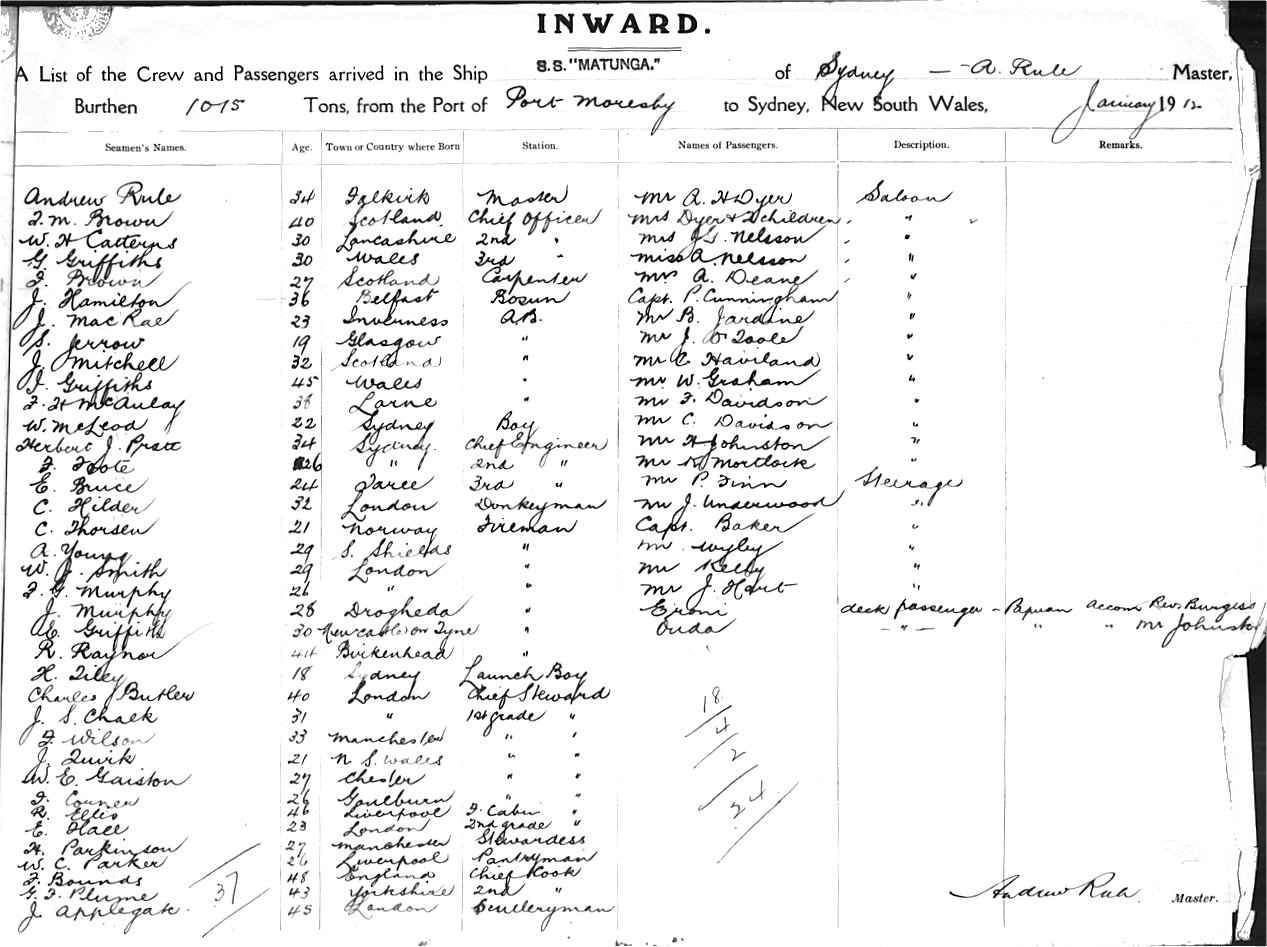 INWARD.
A List of the Crew and Passengers arrived in the Ship S.S. "MATUNGA." of Sydney — A. Rule Master,
Burthen 1015 Tons, from the Port of Port Moresby to Sydney, New South Wales, January 1912
Seamen's Names. Age. Town or Country where Born Station. Names of Passengers. Description. Remarks.
Andrew Rule 34 Falkirk Master Mr A. H Dyer Saloon
F. M. Brown 40 Scotland Chief Officer Mrs Dyer & children "
W. H Catterns 30 Lancashire 2nd " Mrs J G. Nelsson "
G. Griffiths 30 Wales 3rd " Miss A. Nelsson "
F. Brown 27 Scotland Carpenter Mr A. Deane "
J. Hamilton 36 Belfast Bosun Capt. P. Cunningham "
J. MacRae 23 Inverness A.B. Mr B. Jardine "
S. Jerrow 19 Glasgow " Mr J. O Toole "
J. Mitchell 32 Scotland " Mr C. Haviland "
J. Griffiths 45 Wales " Mr W. Graham "
F. H McAulay 38 Larne " Mr F. Davidson "
W. McLeod 22 Sydney Boy Mr C. Davidson "
Herbert J. Pratt 34 Sydney. Chief Engineer Mr H Johnston "
F. Foote 26 " 2nd " Mr K Mortlock "
E. Bruce 24 Taree 3rd " Mr P. Finn Steerage
C. Hilder 32 London Donkeyman Mr J. Underwood "
C. Thorsen 21 Norway Fireman Capt. Baker "
A. Young 29 S. Shields " Mr Wyby "
W. J. Smith 29 London " Mr Kelly "
F. G. Murphy 26 " " Mr J. Hart "
J. Murphy 28 Drogheda " Eroni deck passenger - Papuan accom Rev. Burgess
A. E. Griffith 30 Newcastle on Tyne " Ouda — " — " " Mr Johnsto
R. Raynor 44 Birkenhead "
H. Tiley 18 Sydney Launch Boy
Charles J Butler 40 London Chief Steward
J. S. Chalk 31 " 1st grade "
F. Wilson 33 Manchester " "
J. Quirk 21 N S. Wales " "
W. E. Gaiston 27 Chester " "
F. 26 Goulburn " "
R. Ellis 46 Liverpool F. Cabin "
E. Hall 23 London 2nd grade "
H. Parkinson 27 Manchester Stewardess
W. C. Parker 26 Liverpool Pantryman
F. Bounds 48 England Chief Kook
G. F. Plume 43 Yorkshire 2nd "
J. Applegate. 45 London Sculleryman
18
4
2
24
37
Andrew Rule Master.